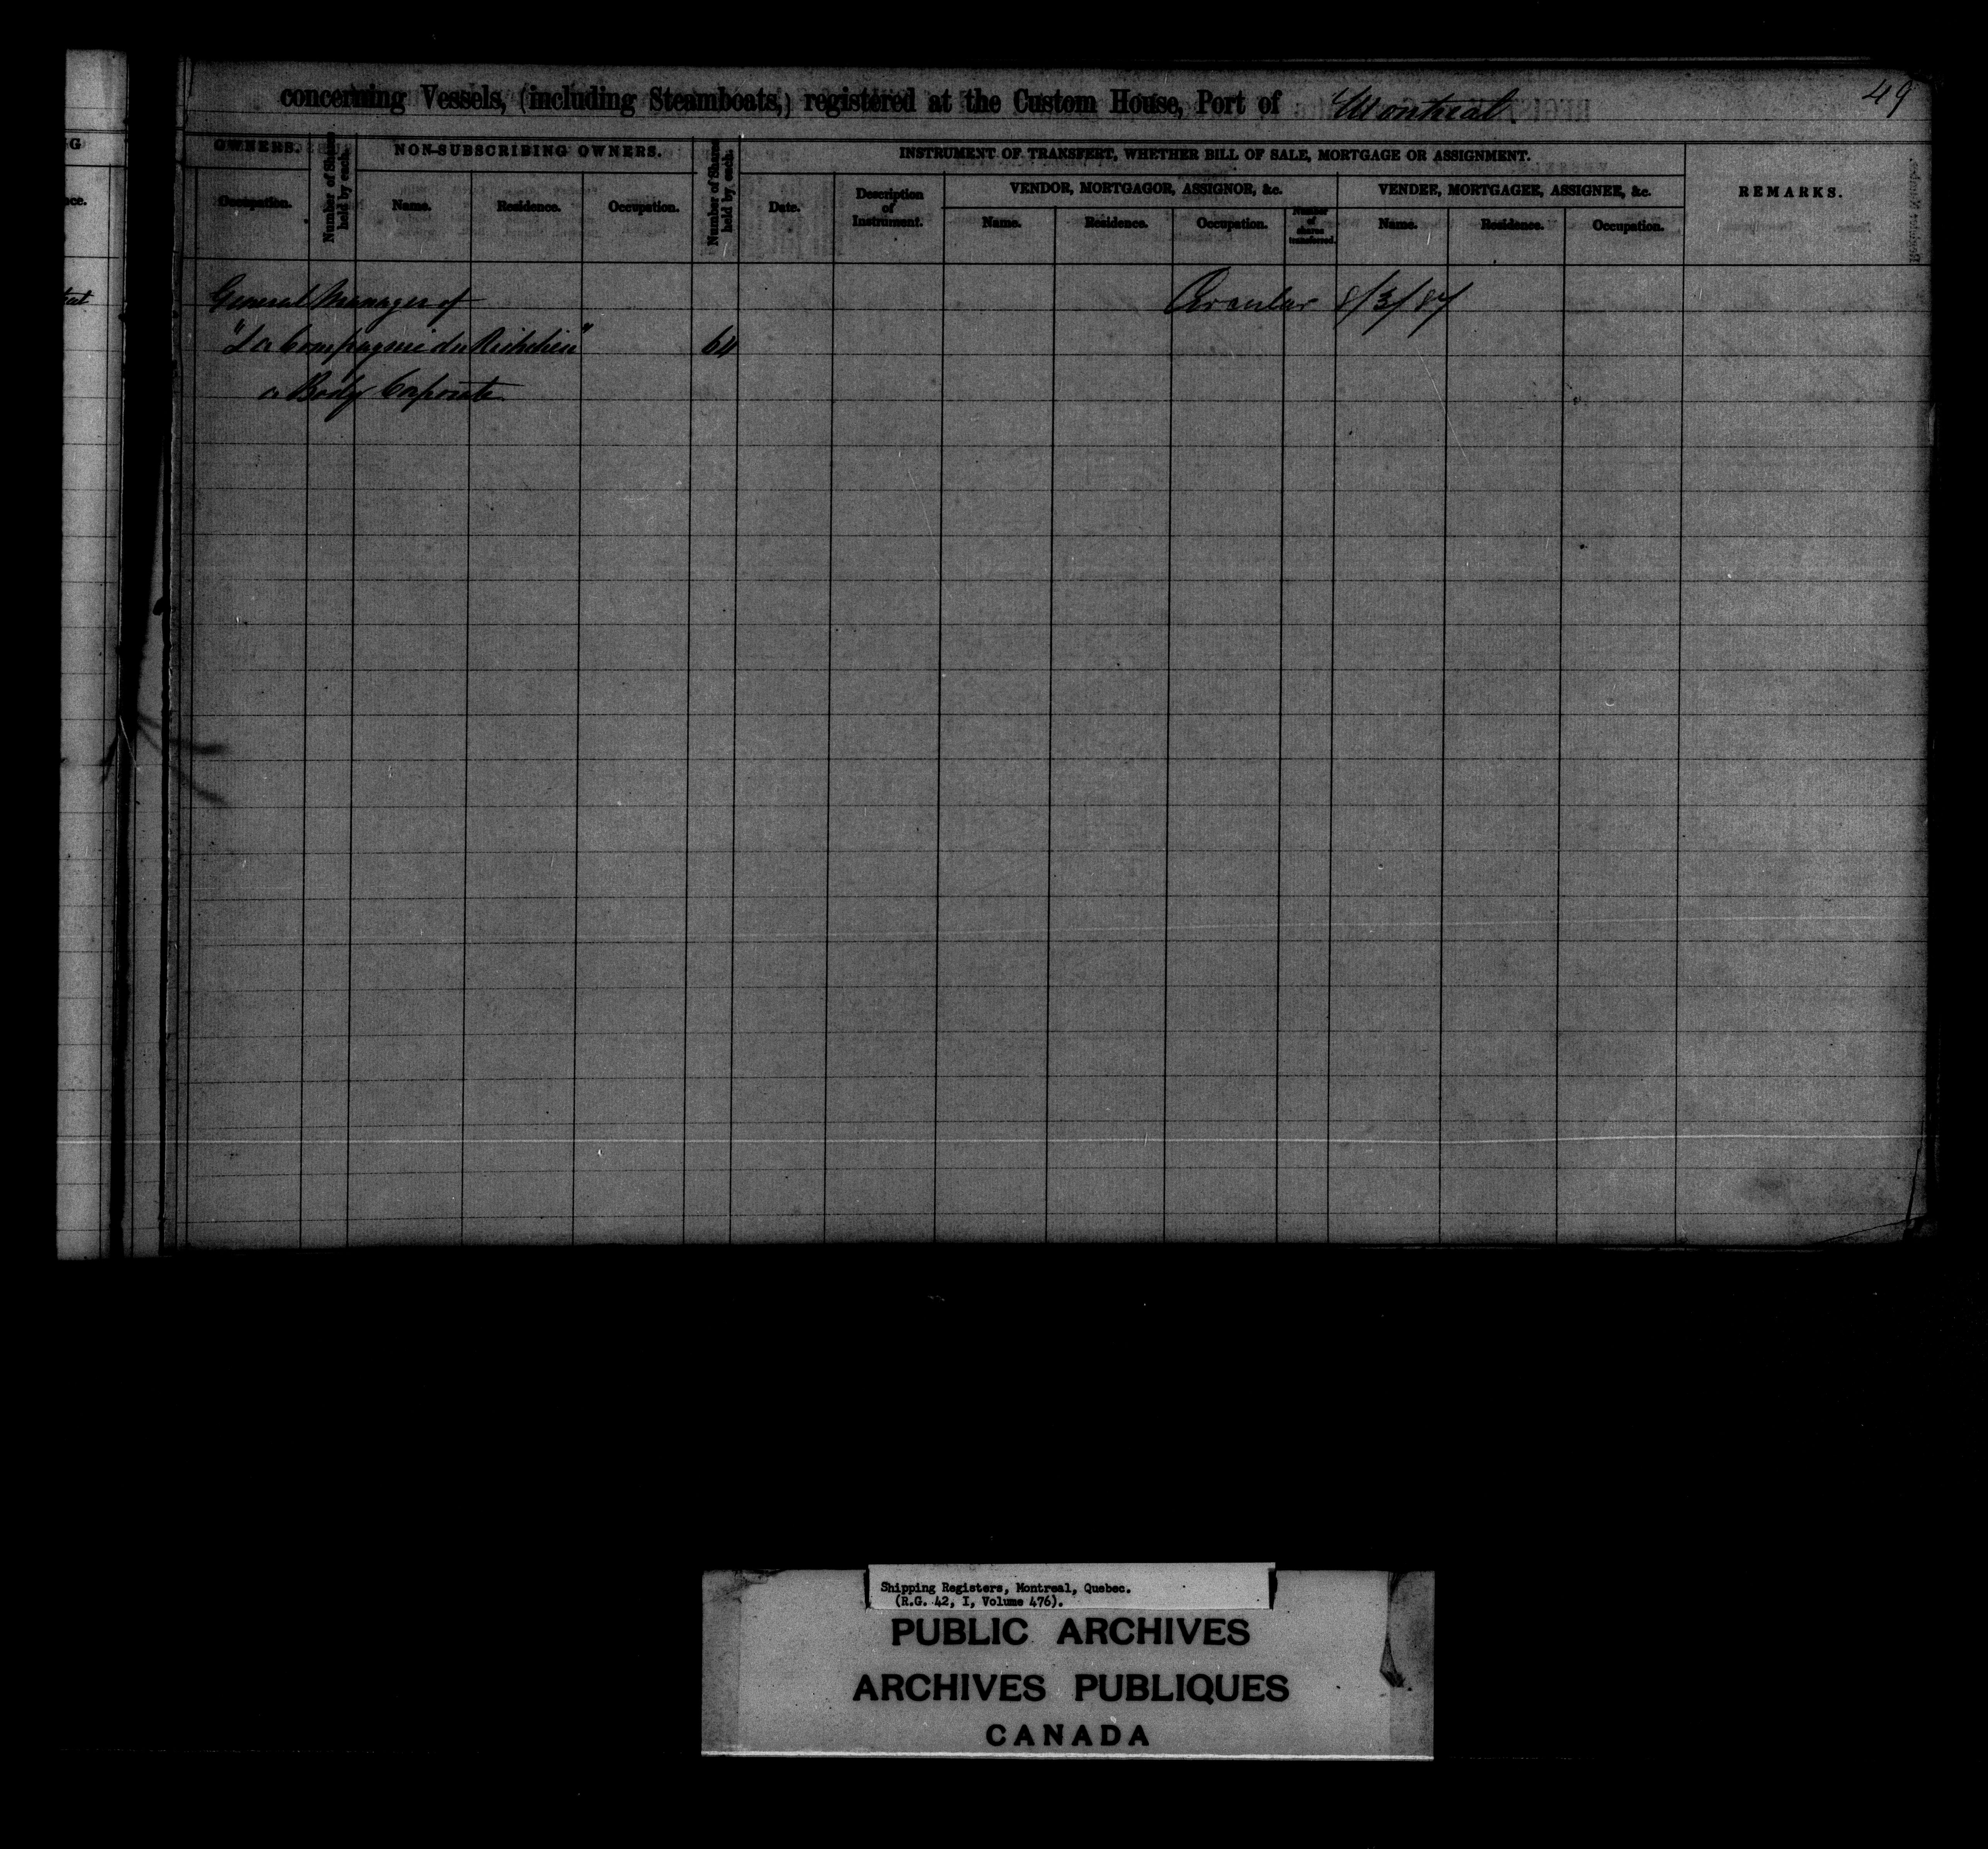 concerning Vessels, (including Steamboats,) registered at the Custom House, Port of Montreal
49
G
OWNERS.
Number of Shares held by each.
NON-SUBSCRIBING OWNERS.
Number of Shares held by each.
INSTRUMENT OF TRANSFERT, WHETHER BILL OF SALE, MORTGAGE OR ASSIGNMENT.
REMARKS.
VENDOR, MORTGAGOR, ASSIGNOR, &c.
VENDEE, MORTGAGEE, ASSIGNEE, &c.
Occupation.
Name.
Residence.
Occupation.
Date.
Description of Instrument.
Name.
Residence.
Occupation.
Number of shares transferred.
Name.
Residence.
Occupation.
General Manager of
Circular 8/3/87
"La Compagnie du Richelieu" 64
a Body Corporate
Shipping Registers, Montreal, Quebec.
(R.G. 42, I, Volume 476).
PUBLIC ARCHIVES
ARCHIVES PUBLIQUES
CANADA